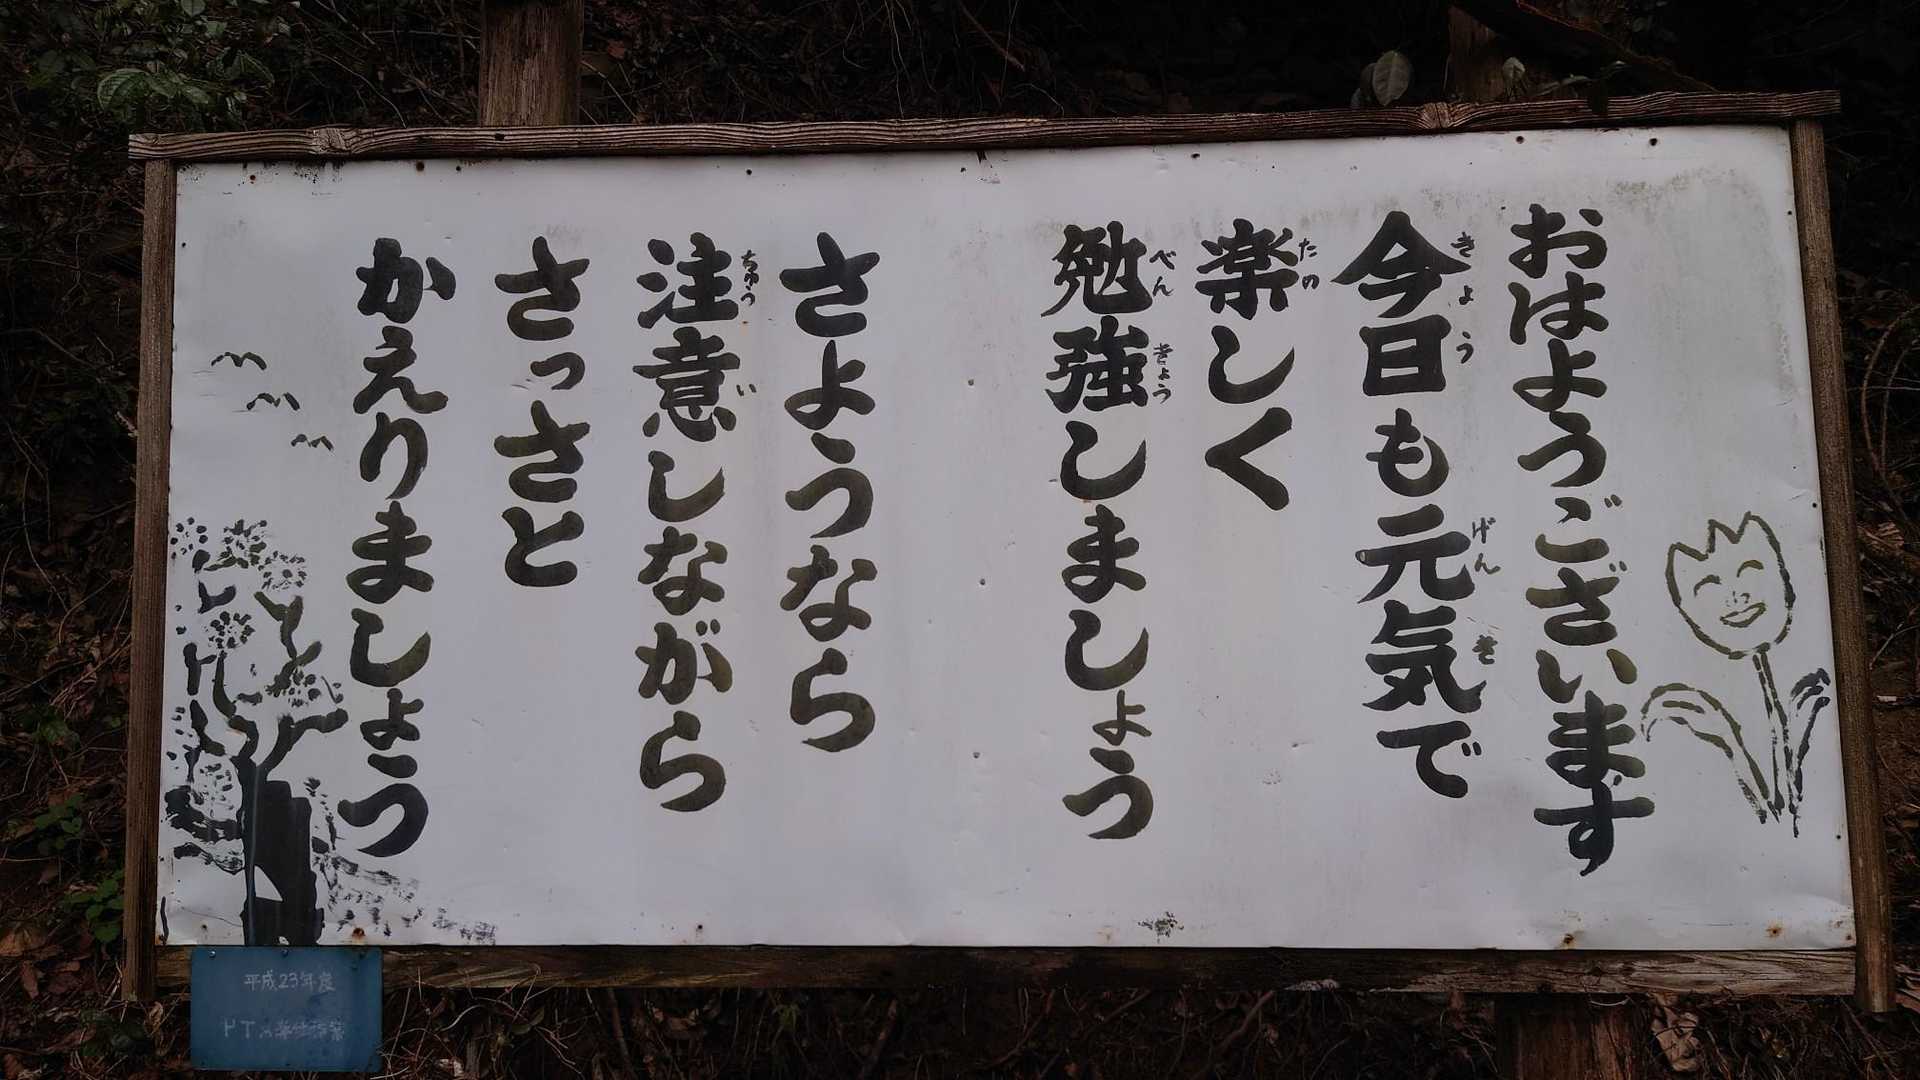 おはようございます
今日も元気で
楽しく
勉強しましょう
さようなら
注意しながら
さっさと
かえりましょう
きょう
げん
き
たの
べん
きょう
ちゅう
い
平成23年度
PTA奉仕作業